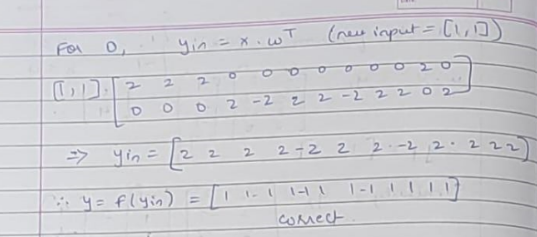 For O, yin = x . wᵀ (new input = [1,1])
[1,1] . [2 2 2 0 0 0 0 0 0 0 2 0
0 0 0 2 -2 2 2 -2 2 2 0 2]
⇒ yin = [2 2 2 2 -2 2 2 -2 2 . 2 2 2]
∴ y = f(yin) = [1 1 1 1 -1 1 1 -1 1 1 1 1]
correct